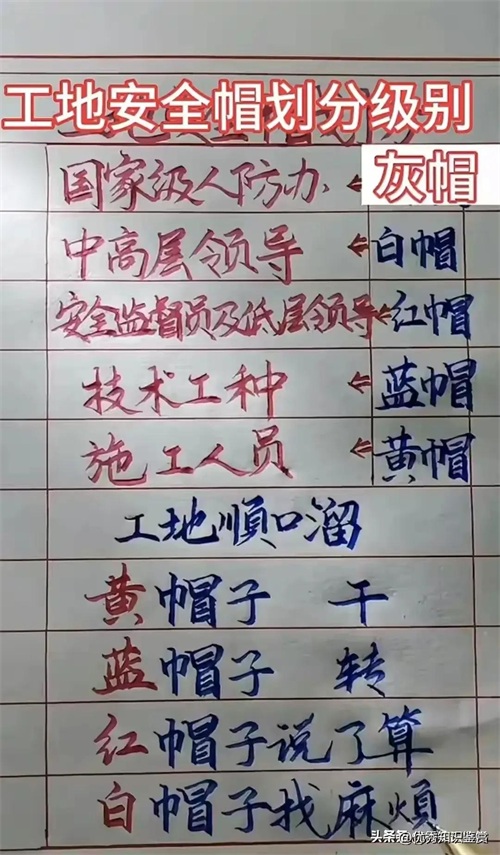 工地安全帽划分级别
国家级人防办← 灰帽
中高层领导←白帽
安全监督员及低层领导←红帽
技术工种←蓝帽
施工人员←黄帽
工地顺口溜
黄帽子 干
蓝帽子 转
红帽子说了算
白帽子找麻烦
头条@优秀知识鉴赏